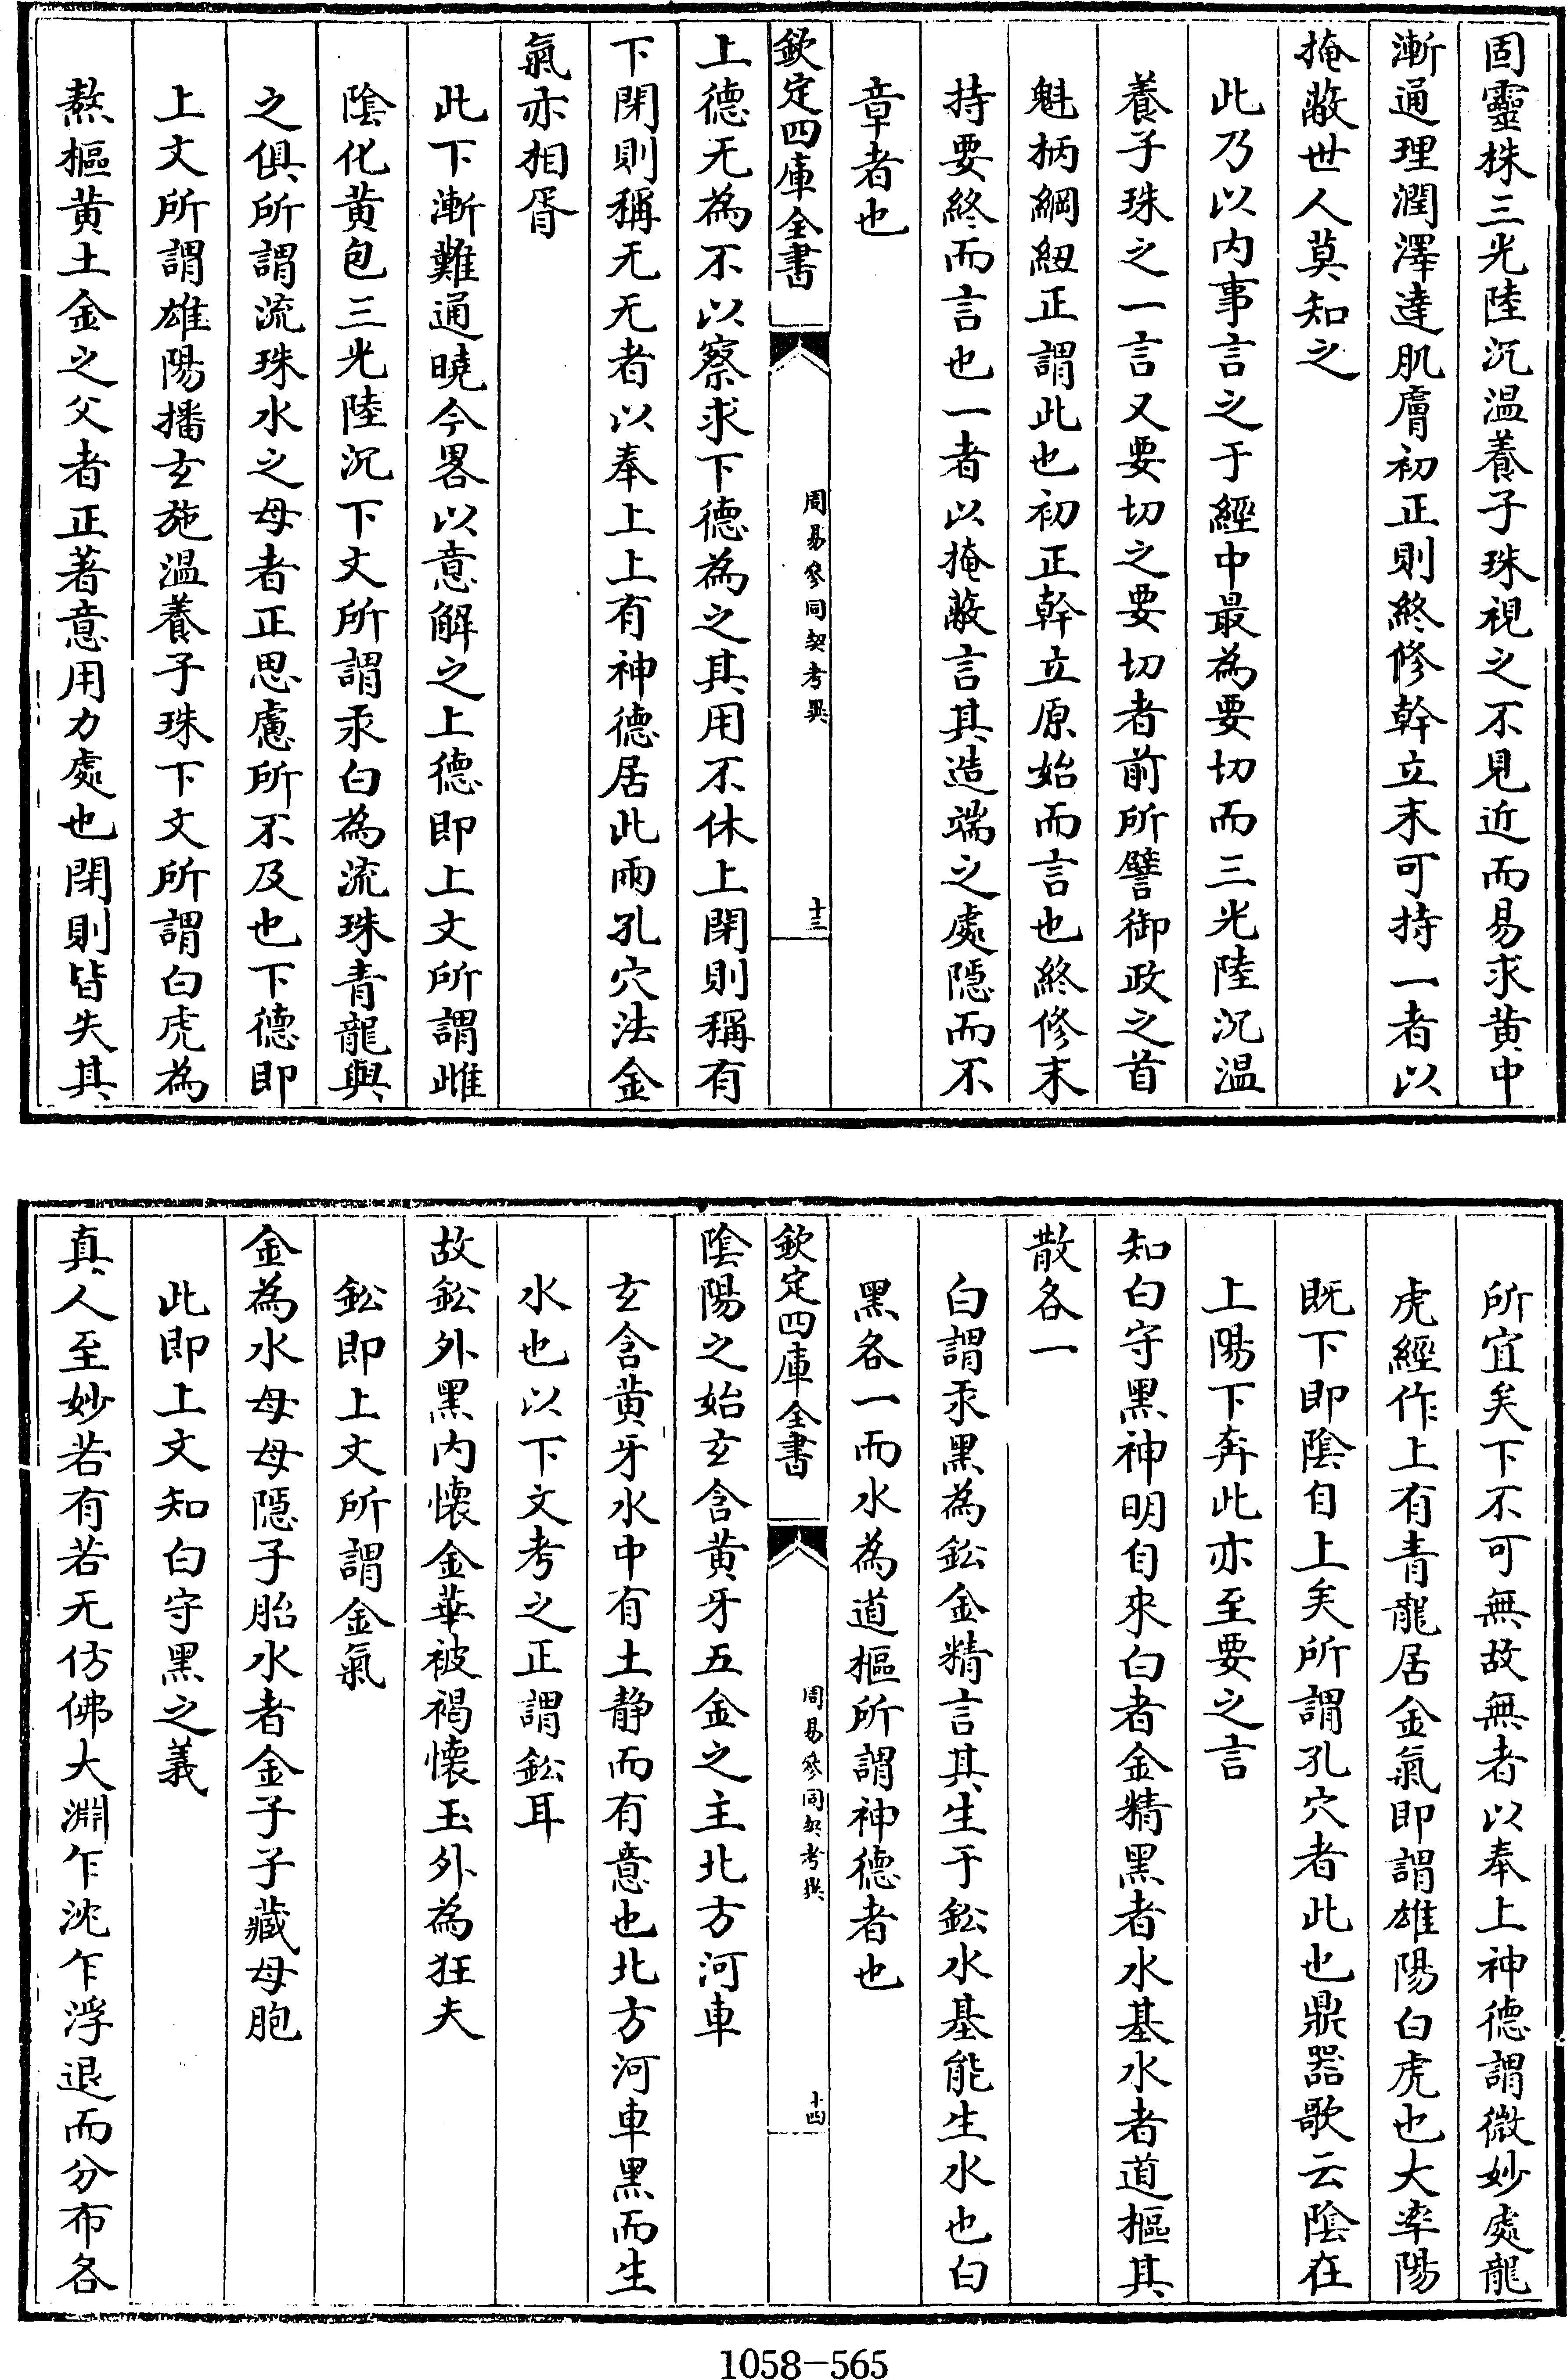 固靈株三光陸沉温養子珠視之不見近而易求黄中
漸通理潤澤達肌膚初正則終修幹立末可持一者以
掩蔽世人莫知之
此乃以内事言之于經中最為要切而三光陸沉温
養子珠之一言又要切之要切者前所譬御政之首
魁柄綱紐正謂此也初正幹立原始而言也終修末
持要終而言也一者以掩蔽言其造端之處隠而不
章者也
欽定四庫全書
周易參同契考異
十三
上德无為不以察求下德為之其用不休上閉則稱有
下閉則稱无无者以奉上上有神德居此兩孔穴法金
氣亦相胥
此下漸難通曉今畧以意解之上德即上文所謂雌
陰化黄包三光陸沉下文所謂汞白為流珠青龍與
之俱所謂流珠水之母者正思慮所不及也下德即
上文所謂雄陽播玄施温養子珠下文所謂白虎為
熬樞黄土金之父者正著意用力處也閉則皆失其
所宜矣下不可無故無者以奉上神德謂微妙處龍
虎經作上有青龍居金氣即謂雄陽白虎也大率陽
既下即陰自上矣所謂孔穴者此也鼎器歌云陰在
上陽下奔此亦至要之言
知白守黑神明自來白者金精黑者水基水者道樞其
散各一
白謂汞黑為鈆金精言其生于鈆水基能生水也白
黑各一而水為道樞所謂神德者也
欽定四庫全書
周易參同契考異
十四
陰陽之始玄含黄牙五金之主北方河車
玄含黄牙水中有土静而有意也北方河車黑而生
水也以下文考之正謂鈆耳
故鈆外黑内懐金華被褐懐玉外為狂夫
鈆即上文所謂金氣
金為水母母隱子胎水者金子子藏母胞
此即上文知白守黑之義
真人至妙若有若无仿佛大淵乍沈乍浮退而分布各
1058-565